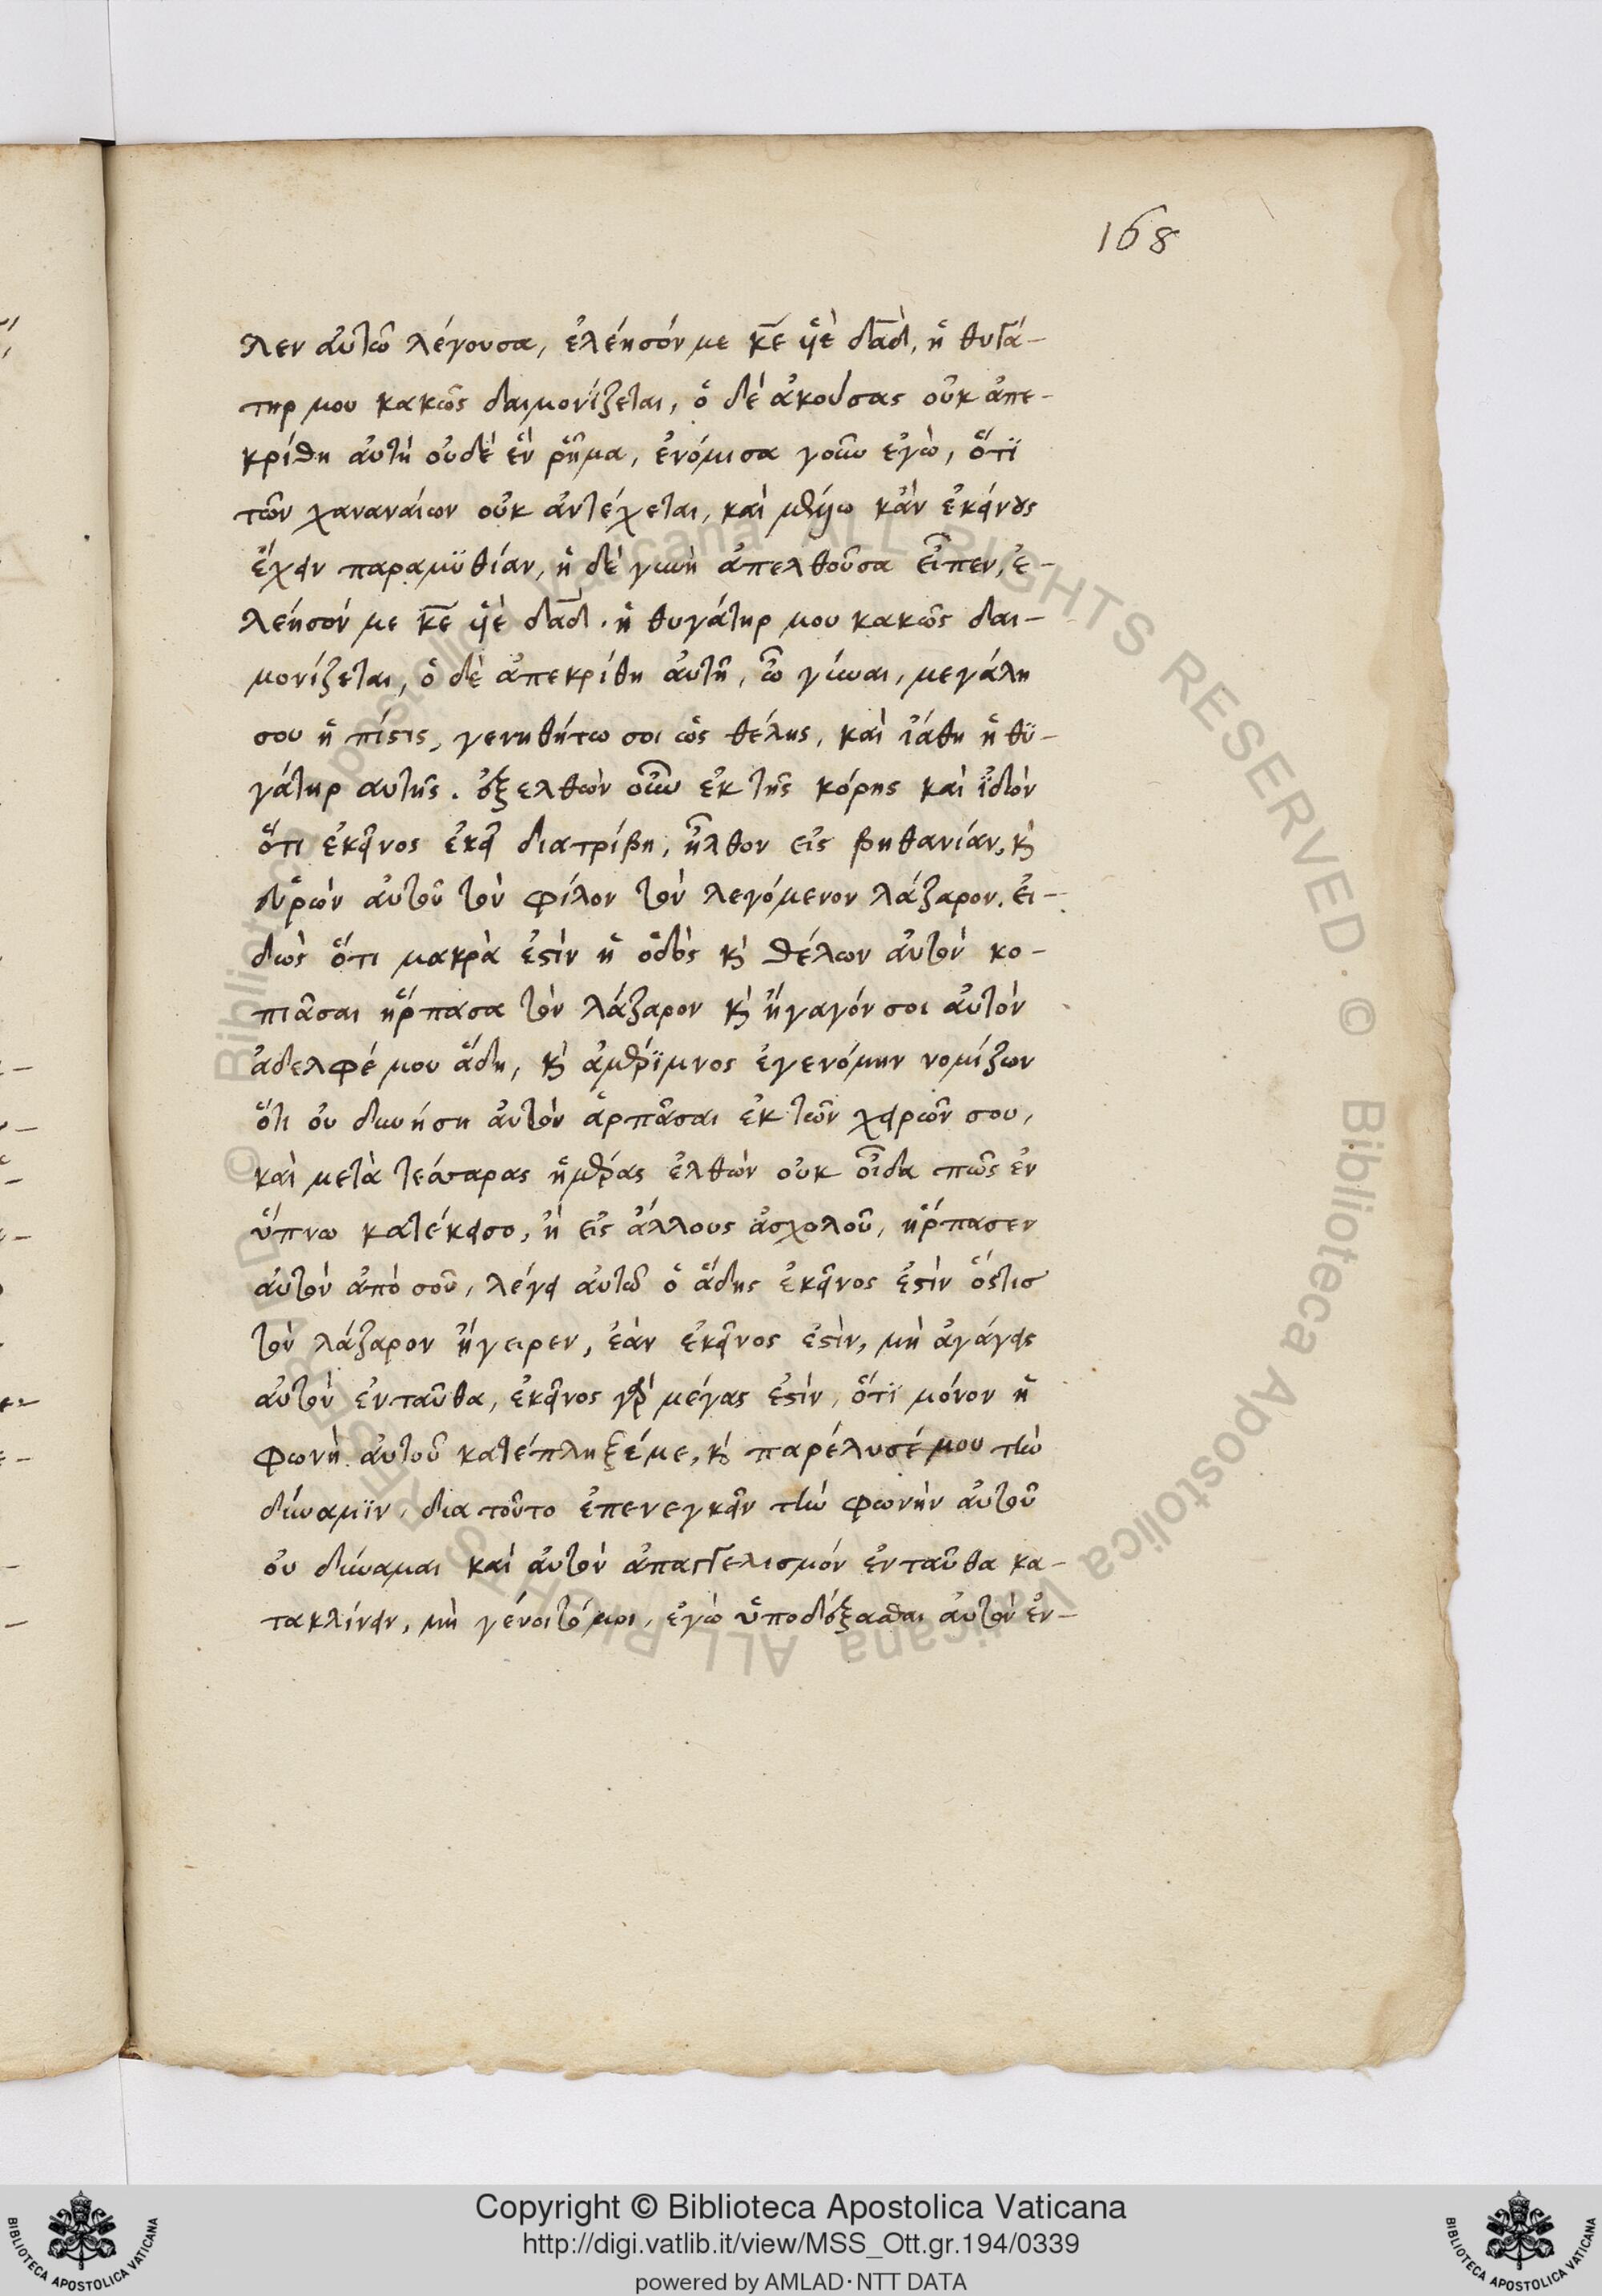 168
λεν αὐτῶ λέγουσα, ἐλέησόν με κ̅ε̅ υἱὲ δα̅δ̅, ἡ θυγά-
τηρ μου κακῶς δαιμονίζεται, ὁ δὲ ἀκούσας οὐκ ἀπε-
κρίθη αὐτὴ οὐδὲ ἓν ῥῆμα, ἐνόμισα γοῦν ἐγὼ, ὅτϊ
τῶν χαναναίων οὐκ ἀντέχεται, καὶ κἂν ἐκείνους
ἔχειν παραμϋθίαν, ἡ δὲ γυνὴ ἀπελθοῦσα εἶπεν, ἐ-
λέησόν με κ̅ε̅ υἱὲ δα̅δ̅. ἡ θυγάτηρ μου κακῶς δαι-
μονίζεται, ὁ δὲ ἀπεκρίθη αὐτῆ, ὦ γύναι, μεγάλη
σου ἡ πίστις, γενηθήτω σοι ὡς θέλης, καὶ ἰάθη ἡ θϋ-
γάτηρ αυτῆς. ἐξελθὼν οὖν ἐκ τῆς κόρης καὶ ἰδὼν
ὅτι ἐκεῖνος ἐκεῖ διατρίβη, ἦλθον εἰς βηθανίαν, κ̀
εὑρὼν αὐτοῦ τὸν φίλον τὸν λεγόμενον λάζαρον. εἰ-
δὼς ὅτι μακρὰ ἐστὶν ἡ ὁδὸς κ̀ θέλων αὐτὸν κο-
πιᾶσαι ἥρπασα τὸν λάζαρον κ̀ ἤγαγόν σοι αὐτὸν
ἀδελφέ μου ἅδη, κ̀ ἀμέρϊμνος ἐγενόμην νομίζων
ὅτι οὐ δυνήση αὐτὸν ἁρπᾶσαι ἐκ τῶν χειρῶν σου,
καὶ μετὰ τέσσαρας ἡμέρας ἐλθὼν οὐκ οἶδα πῶς ἐν
ὕπνω κατέκεισο, ἢ εἰς ἄλλους ἀσχολοῦ, ἥρπασεν
αὐτὸν ἀπὸ σοῦ, λέγει αὐτῶ ὁ ἅδης ἐκεῖνος ἐστὶν ὅστισ
τὸν λάζαρον ἤγειρεν, ἐὰν ἐκεῖνος ἐστὶν, μὴ ἀγάγεις
αὐτὸν ἐνταῦθα, ἐκεῖνος γὰρ μέγας ἐστὶν, ὅτϊ μόνον ἡ
φωνὴ αὐτοῦ κατέπληξέ με, κ̀ παρέλυσέ μου τὴν
δύναμϊν, δια τοῦτο ἐπενεγκεῖν τὴν φωνὴν αὐτοῦ
οὐ δύναμαι καὶ αὐτὸν ἀπαγγελισμόν ἐνταῦθα κα-
τακλίνειν, μὴ γένοιτό μοι, ἐγὼ ὑποδέξασθαι αὐτὸν ἐν-
Copyright © Biblioteca Apostolica Vaticana
http://digi.vatlib.it/view/MSS_Ott.gr.194/0339
powered by AMLAD·NTT DATA